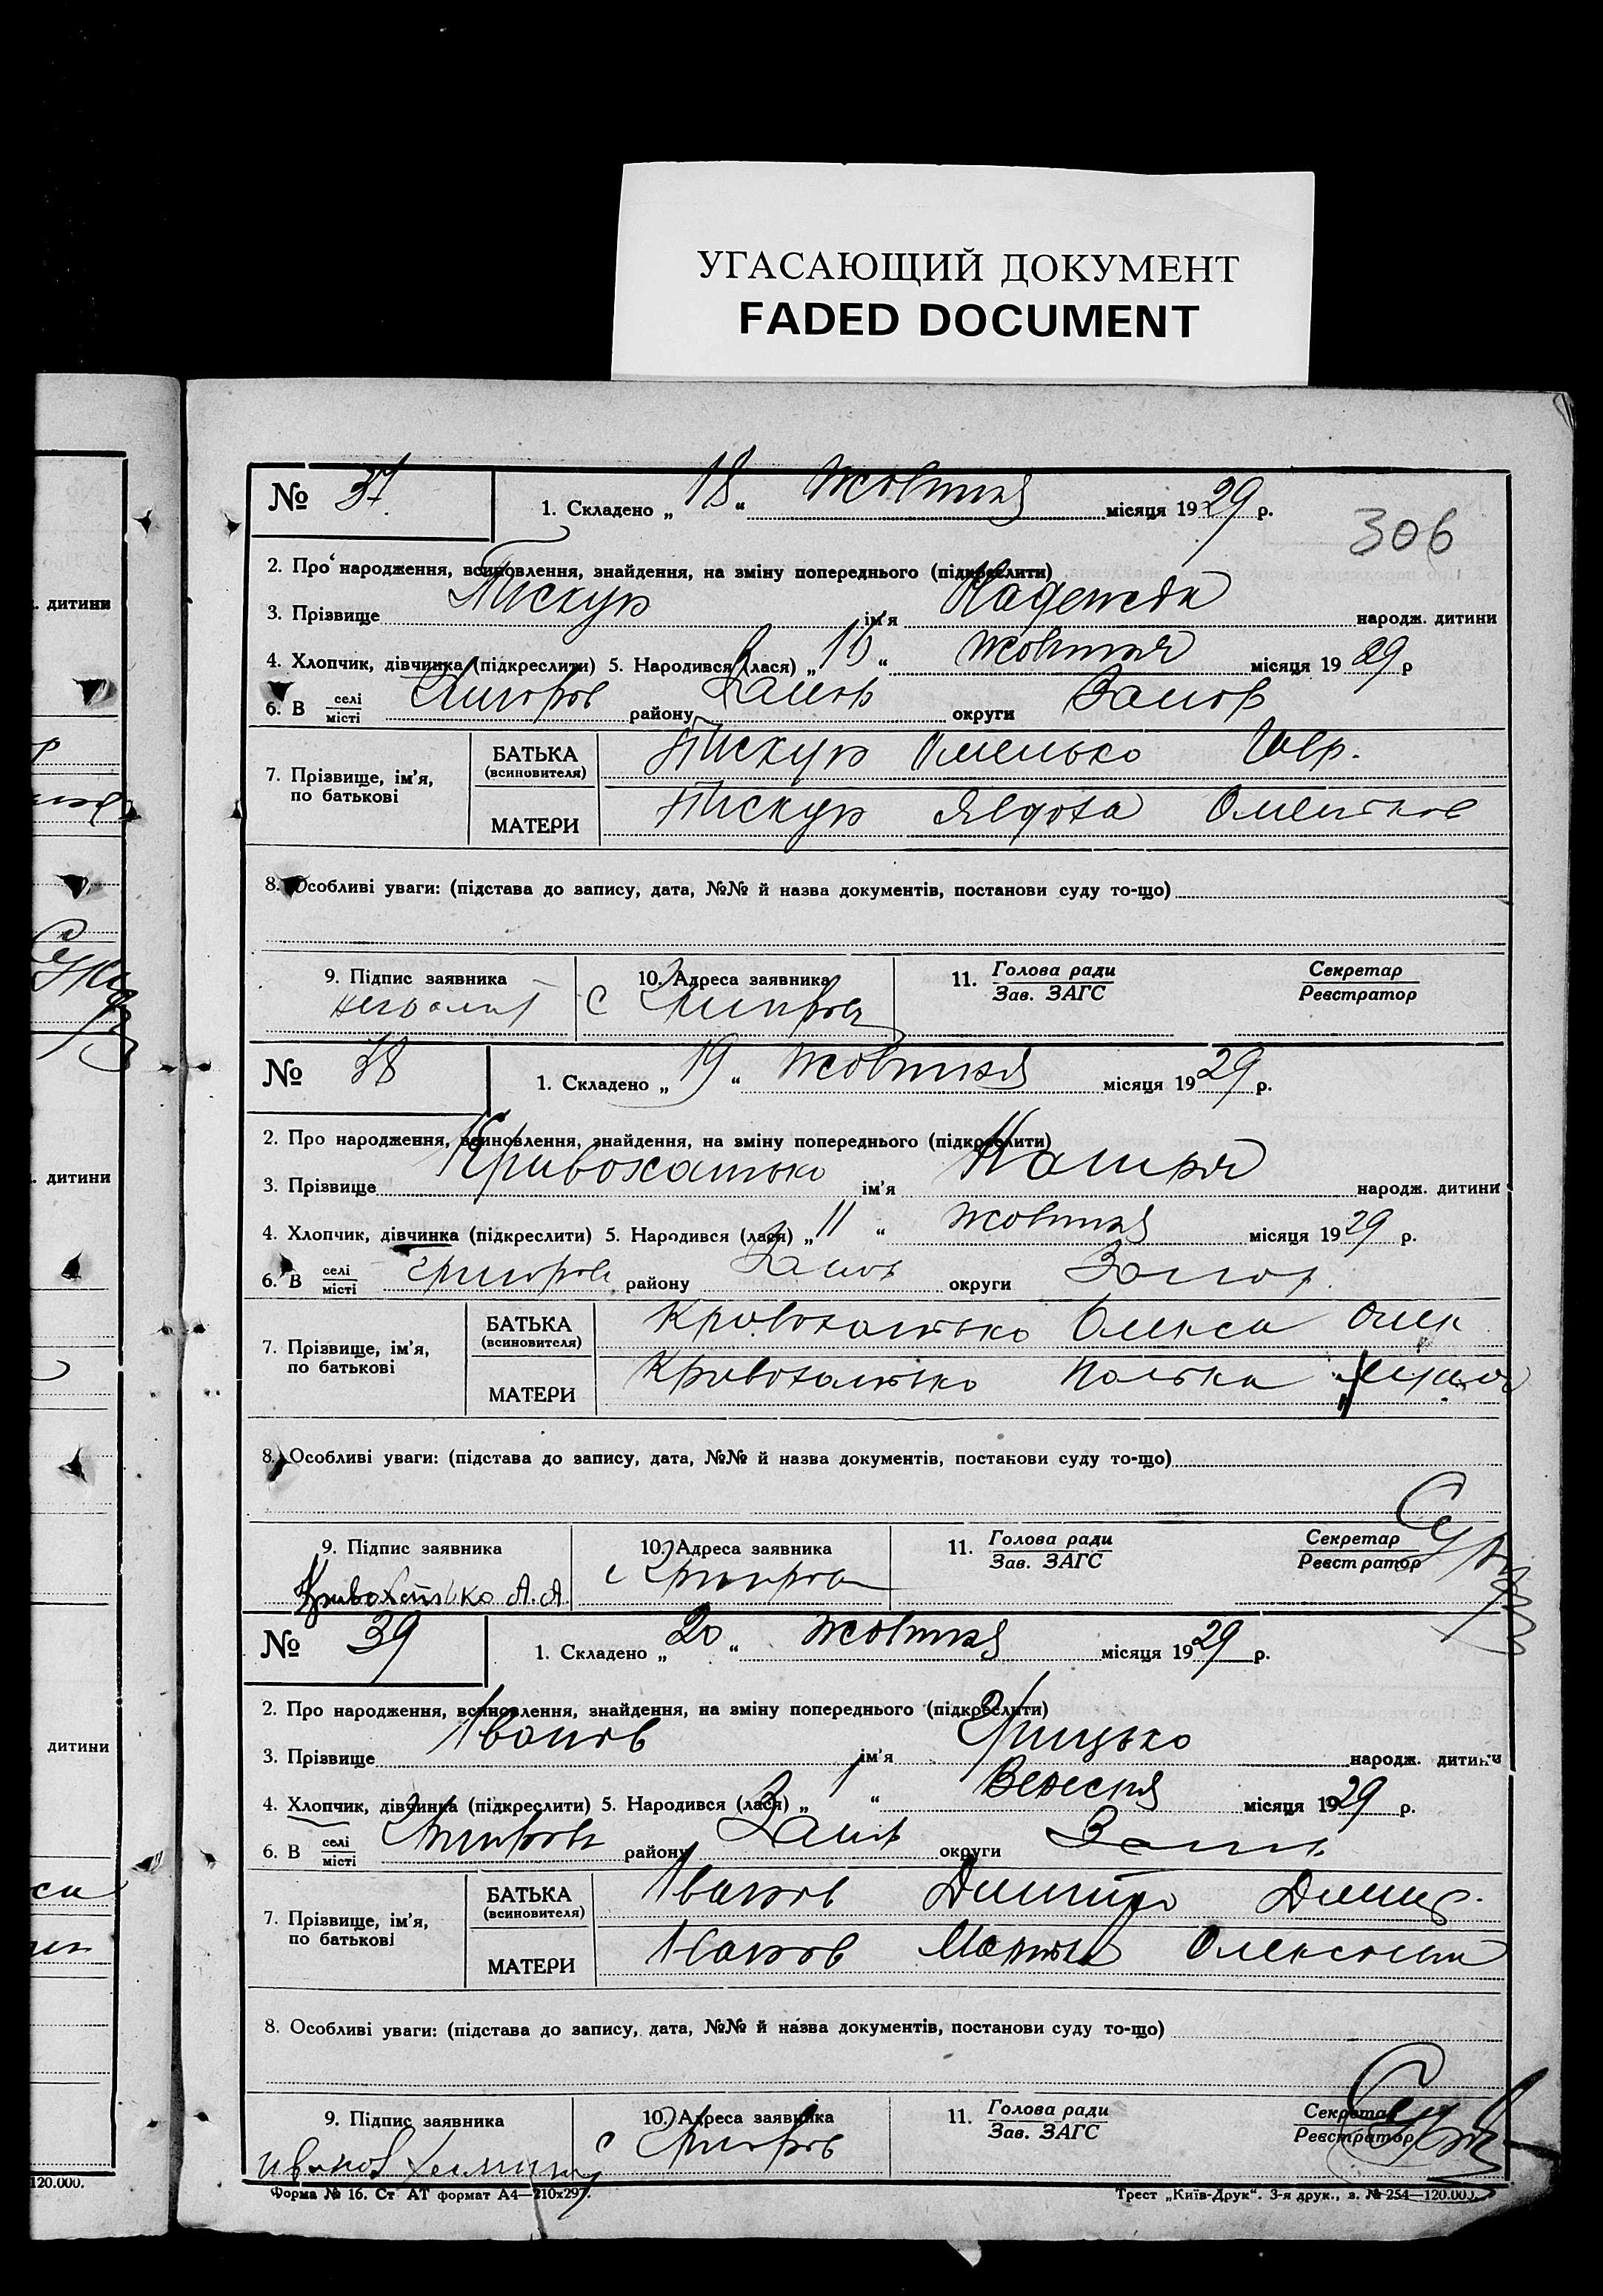 УГАСАЮЩИЙ ДОКУМЕНТ
FADED DOCUMENT
306
№ 37. 1. Складено „ 18 “ Жовтня місяця 1929 р.
2. Про народження, всиновлення, знайдення, на зміну попереднього (підкреслити)
3. Прізвище Пискун ім'я Надежда народж. дитини
4. Хлопчик, дівчинка (підкреслити) 5. Народився (лася) „ “ Жовтня місяця 1929 р
6. В селі/місті Григоров району Запор округи Запор
7. Прізвище, ім'я, по батькові
БАТЬКА (всиновителя) Пискун Омелько
МАТЕРИ Пискун Явдоха
8. Особливі уваги: (підстава до запису, дата, №№ й назва документів, постанови суду то-що)
9. Підпис заявника 10. Адреса заявника 11. Голова ради/Зав. ЗАГС Секретар/Реєстратор
с Григоров
№ 38 1. Складено „ 19 “ Жовтня місяця 1929 р.
2. Про народження, всиновлення, знайдення, на зміну попереднього (підкреслити)
3. Прізвище Кривохатько ім'я Катря народж. дитини
4. Хлопчик, дівчинка (підкреслити) 5. Народився (лася) „ 11 “ Жовтня місяця 1929 р.
6. В селі/місті Григоров району Запор округи Запор
7. Прізвище, ім'я, по батькові
БАТЬКА (всиновителя) Кривохатько Олекса Олек
МАТЕРИ Кривохатько
8. Особливі уваги: (підстава до запису, дата, №№ й назва документів, постанови суду то-що)
9. Підпис заявника 10. Адреса заявника 11. Голова ради/Зав. ЗАГС Секретар/Реєстратор
Кривохатько А. А. с Григоров
№ 39 1. Складено „ 20 “ Жовтня місяця 1929 р.
2. Про народження, всиновлення, знайдення, на зміну попереднього (підкреслити)
3. Прізвище Іванов ім'я Грицько народж. дитини
4. Хлопчик, дівчинка (підкреслити) 5. Народився (лася) „ 1 “ Вересня місяця 1929 р.
6. В селі/місті Григоров району Запор округи Запор
7. Прізвище, ім'я, по батькові
БАТЬКА (всиновителя) Іванов Дмитро Дмитр.
МАТЕРИ Іванов
8. Особливі уваги: (підстава до запису, дата, №№ й назва документів, постанови суду то-що)
9. Підпис заявника 10. Адреса заявника 11. Голова ради/Зав. ЗАГС Секретар/Реєстратор
с Григоров
Форма № 16. Ст АТ формат А4—210х297. Трест „Київ-Друк“. 3-я друк., з. № 254—120.000.
дитини
дитини
дитини
120.000.